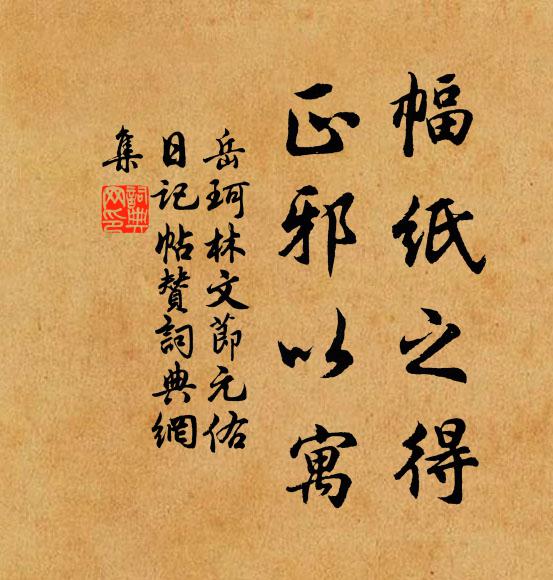 幅紙之得
正邪以寓
岳珂林文節元佑
日記帖贊詞典網
集
詞典
网印